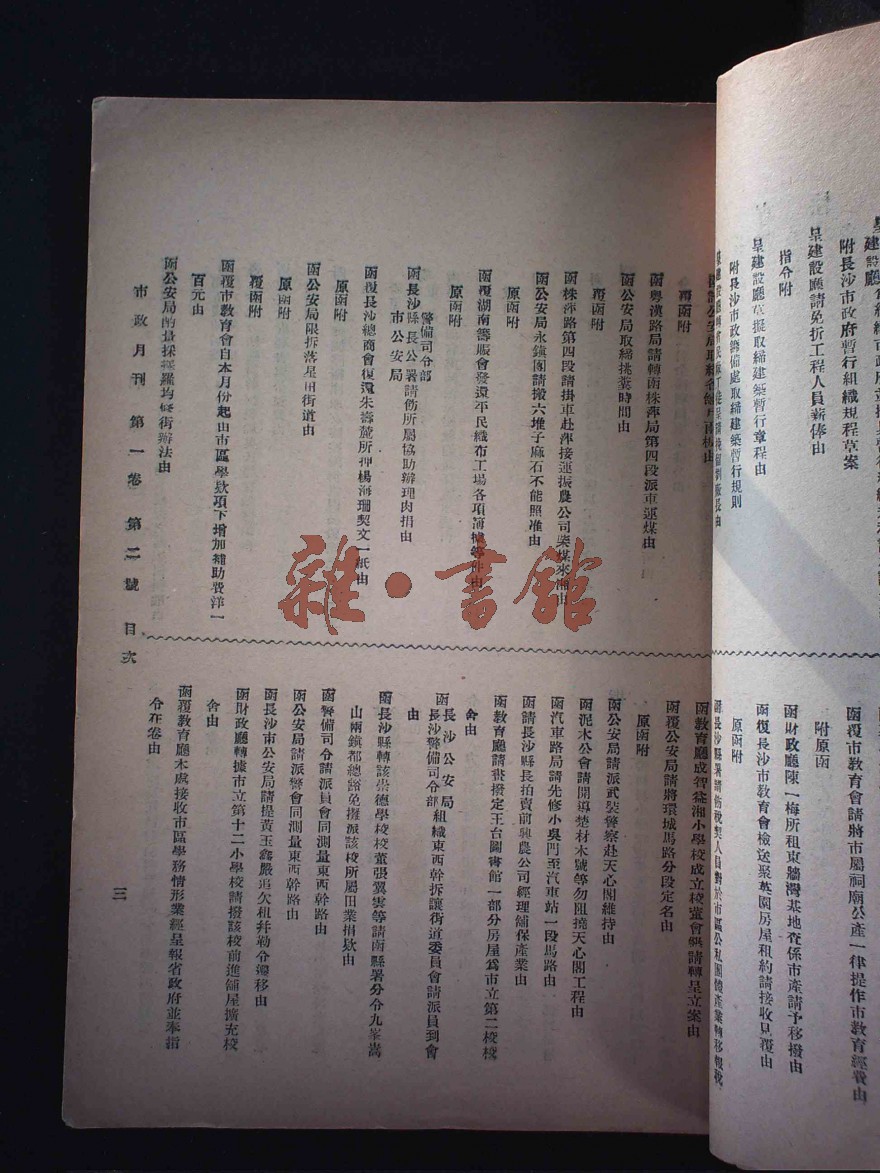 呈建設廳請免折工程人員薪俸由
附長沙市政府暫行組織規程草案
指令附
呈建設廳草擬取締建築暫行章程由
附長沙市政籌備處取締建築暫行規則
覆函附
函粵漢路局請轉函株萍局第四段派車運煤由
函公安局取締挑糞時間由
覆函附
函株萍路第四段請掛車赴萍接運振農公司柴煤來湘由
函公安局永鎮閣請搬六堆子麻石不能照准由
原函附
函覆湖南籌賑會發還平民織布工場各項
原函附
函長沙縣長公署
警備司令部
市公安局
請飭所屬協助辦理肉捐由
函覆長沙總商會復還朱壽麓所押楊海珊契文一紙由
原函附
函公安局限拆落星田街道由
原函附
覆函附
函覆市教育會自本月份起由市區學欵項下增加補助費洋一
百元由
函公安局酌量採擇羅均修街辦法由
函覆市教育會請將市屬祠廟公產一律提作市教育經費由
附原函
函財政廳陳一梅所租東牆灣基地查係市產請予移撥由
函復長沙市教育會檢送聚英園房屋租約請接收見覆由
原函附
函教育廳成智 湘小學校成立校董會 請轉呈立案由
函覆公安局請將環城馬路分段定名由
原函附
函公安局請派武裝警察赴天心閣維持由
函泥木公會請開導楚材木號等勿阻撓天心閣工程由
函汽車路局請先修小吳門至汽車站一段馬路由
函請長沙縣長拍賣前興農公司經理舖保產業由
函教育廳請 撥定王台圖書館一部分房屋為市立第二校校
舍由
函長沙公安局
長沙警備司令部
組織東西幹拆讓街道委員會請派員到會
由
函長沙縣轉該崇德學校校董張翼雲等請函縣署分令九峯嵩
山兩鎮都總豁免攤派該校所屬田業捐欵由
函警備司令請派員會同測量東西幹路由
函公安局請派警會同測量東西幹路由
函長沙市公安局請提黃玉鑫嚴追欠租幷勒令遷移由
函財政廳轉據市立第十二小學校請撥該校前進舖屋擴充校
舍由
函覆教育廳本處接收市區學務情形業經呈報省政府並奉指
令在卷由
市政月刊 第一卷 第二號 目次
三
雜·書館